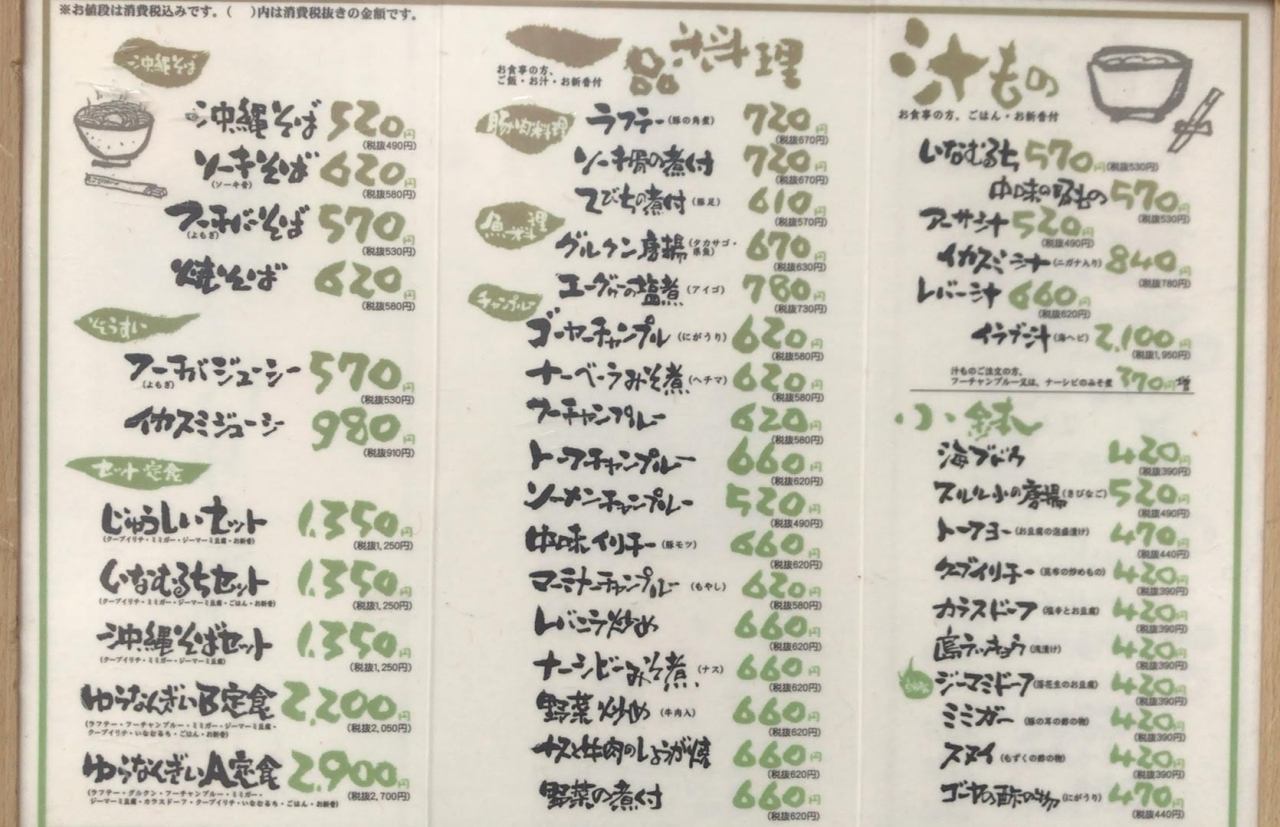 ※お値段は消費税込みです。(　)内は消費税抜きの金額です。
沖縄そば
沖縄そば 520円
(税抜490円)
ソーキそば 620円
(ソーキ骨)
(税抜580円)
フーチバーそば 570円
(よもぎ)
(税抜530円)
焼そば 620円
(税抜580円)
ぞうすい
フーチバジューシー 570円
(よもぎ)
(税抜530円)
イカスミジューシー 980円
(税抜910円)
セット・定食
じゅうしいセット 1,350円
(クーブイリチ・ミミガー・ジーマーミ豆腐・お新香)
(税抜1,250円)
いなむるちセット 1,350円
(クーブイリチ・ミミガー・ジーマーミ豆腐・ごはん・お新香)
(税抜1,250円)
沖縄そばセット 1,350円
(クーブイリチ・ミミガー・ジーマーミ豆腐)
(税抜1,250円)
ゆうなんぎいB定食 2,200円
(ラフテー・フーチャンプルー・ミミガー・ジーマーミ豆腐・
クーブイリチ・いなむるち・ごはん・お新香)
(税抜2,050円)
ゆうなんぎいA定食 2,900円
(ラフテー・グルクン・フーチャンプルー・ミミガー・
ジーマーミ豆腐・カラスドーフ・クーブイリチ・いなむるち・ごはん・お新香)
(税抜2,700円)
一品料理
お食事の方、
ご飯・お汁・お新香付
豚肉料理
ラフテー(豚の角煮) 720円
(税抜670円)
ソーキ骨の煮付 720円
(税抜670円)
てびちの煮付(豚足) 610円
(税抜570円)
魚料理
グルクン唐揚(タカサゴ・県魚) 670円
(税抜630円)
エーグヮーの塩煮(アイゴ) 780円
(税抜730円)
チャンプルー
ゴーヤーチャンプル(にがうり) 620円
(税抜580円)
ナーベーラみそ煮(ヘチマ) 620円
(税抜580円)
フーチャンプルー 620円
(税抜580円)
トーフチャンプルー 660円
(税抜620円)
ソーメンチャンプルー 520円
(税抜490円)
中味イリチー(豚モツ) 660円
(税抜620円)
マーミナーチャンプルー(もやし) 620円
(税抜580円)
レバニラ炒め 660円
(税抜620円)
ナーシビーみそ煮(ナス) 660円
(税抜620円)
野菜炒め(牛肉入) 660円
(税抜620円)
ナスと牛肉のしょうが焼 660円
(税抜620円)
野菜の煮付 660円
(税抜620円)
汁もの
お食事の方、ごはん・お新香付
いなむるち 570円(税抜530円)
中味の吸もの 570円
(税抜530円)
アーサ汁 520円
(税抜490円)
イカスミ汁(ニガナ入り) 840円
(税抜780円)
レバー汁 660円
(税抜620円)
イラブ汁(海ヘビ) 2,100円
(税抜1,950円)
汁ものご注文の方、
フーチャンプルー又は、ナーシビのみそ煮 370円増
小鉢
海ブドウ 420円
(税抜390円)
スルル小の唐揚(きびなご) 520円
(税抜490円)
トーフヨー(お豆腐の泡盛漬け) 470円
(税抜440円)
クーブイリチー(昆布の炒めもの) 420円
(税抜390円)
カラスドーフ(塩辛とお豆腐) 420円
(税抜390円)
島ラッキョウ(浅漬け) 420円
(税抜390円)
ジーマミドーフ(落花生のお豆腐) 420円
(税抜390円)
ミミガー(豚の耳の酢の物) 420円
(税抜390円)
スヌイ(もずくの酢の物) 420円
(税抜390円)
ゴーヤの酢の物(にがうり) 470円
(税抜440円)